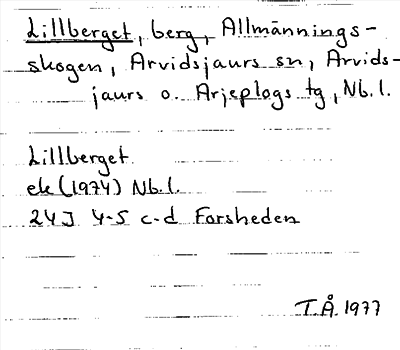 Lillberget, berg, Allmännings-
skogen, Arvidsjaurs sn, Arvids-
jaurs o. Arjeplogs tg, Nb.l.
Lillberget
ek (1974) Nb.l.
24J 4-5 c-d Forsheden
T.Å. 1977